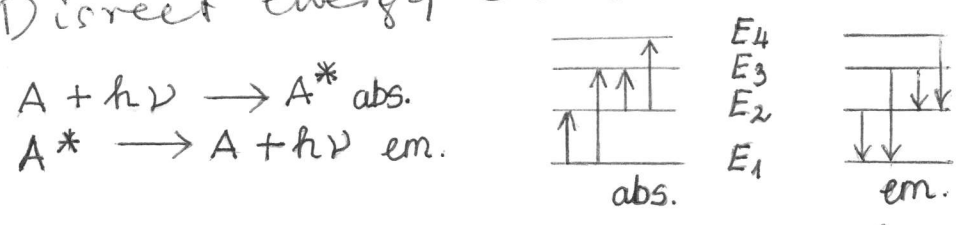 Disreet energy
A + hν → A* abs.
A* → A + hν em.
E4
E3
E2
E1
abs. em.